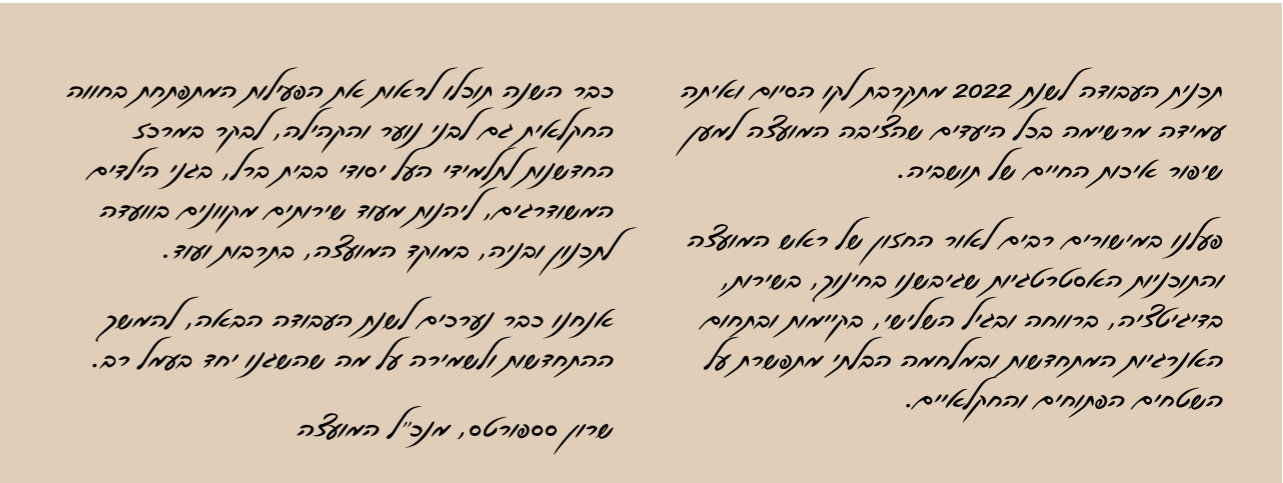 תכנית העבודה לשנת 2022 מתקרבת לקו הסיום ואיתה
עמידה מרשימה בכל היעדים שהציבה המועצה למען
שיפור איכות החיים של תושביה.
פעלנו במישורים רבים לאור החזון של ראש המועצה
והתוכניות האסטרטגיות שגיבשנו בחינוך, בשירות,
בדיגיטציה, ברווחה ובגיל השלישי, בקיימות ובתחום
האנרגיות המתחדשות ובמלחמה הבלתי מתפשרת על
השטחים הפתוחים והחקלאיים.
כבר השנה תוכלו לראות את הפעילות המתפתחת בחווה
החקלאית גם לבני נוער והקהילה, לבקר במרכז
החדשנות לתלמידי העל יסודי בבית ברל, בגני הילדים
המשודרגים, ליהנות מעוד שירותים מקוונים בוועדה
לתכנון ובניה, במוקד המועצה, בתרבות ועוד.
אנחנו כבר נערכים לשנת העבודה הבאה, להמשך
ההתחדשות ולשמירה על מה שהשגנו יחד בעמל רב.
שרון ססופרטס, מנכ״ל המועצה